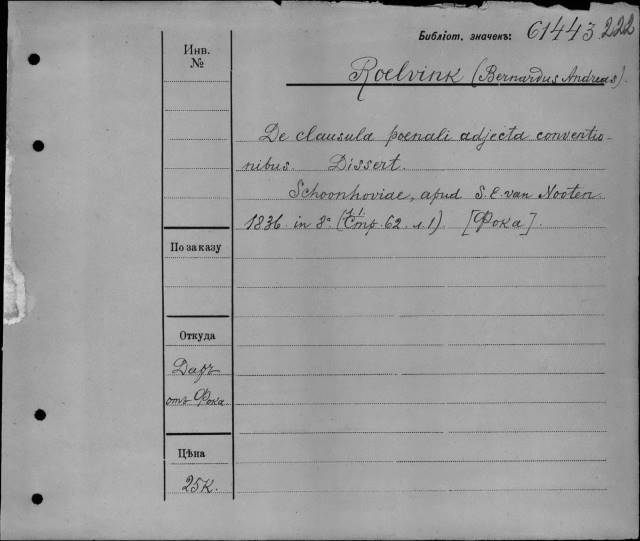 Библіот. значекъ: 61443 222
Инв.
№
Roelvink (Bernardus Andreas)
De clausula poenali adjecta conventio-
nibus. Dissert.
Schoonhoviae, apud S. E. van Nooten
1836. in 8° (Стр. 62 л. 1) [Фока].
По заказу
Откуда
Даръ
отъ Фока
Цѣна
25к.